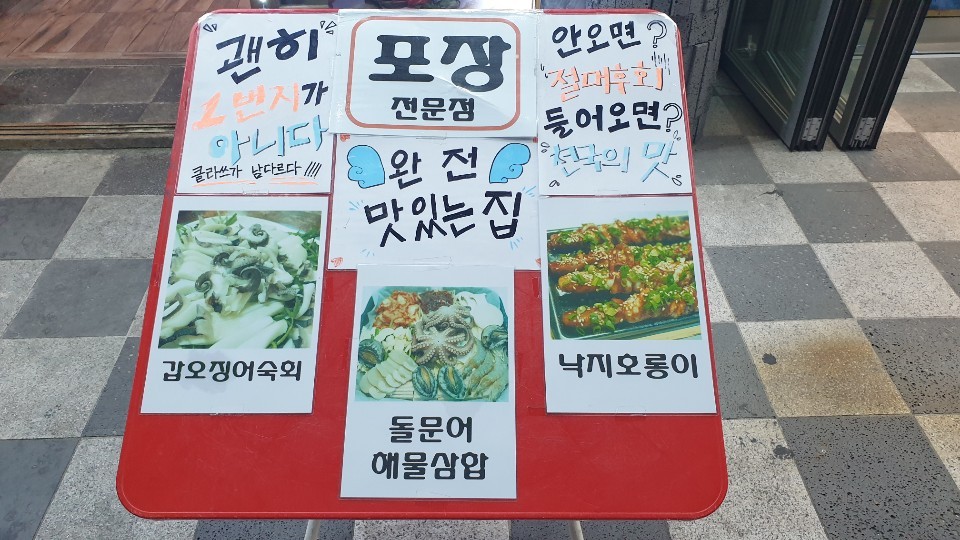 괜히
1번지가
아니다
클라쓰가 남다르다
포장
전문점
안오면?
절대후회
들어오면?
천국의 맛
완전
맛있는집
갑오징어숙회
돌문어
해물삼합
낙지호롱이